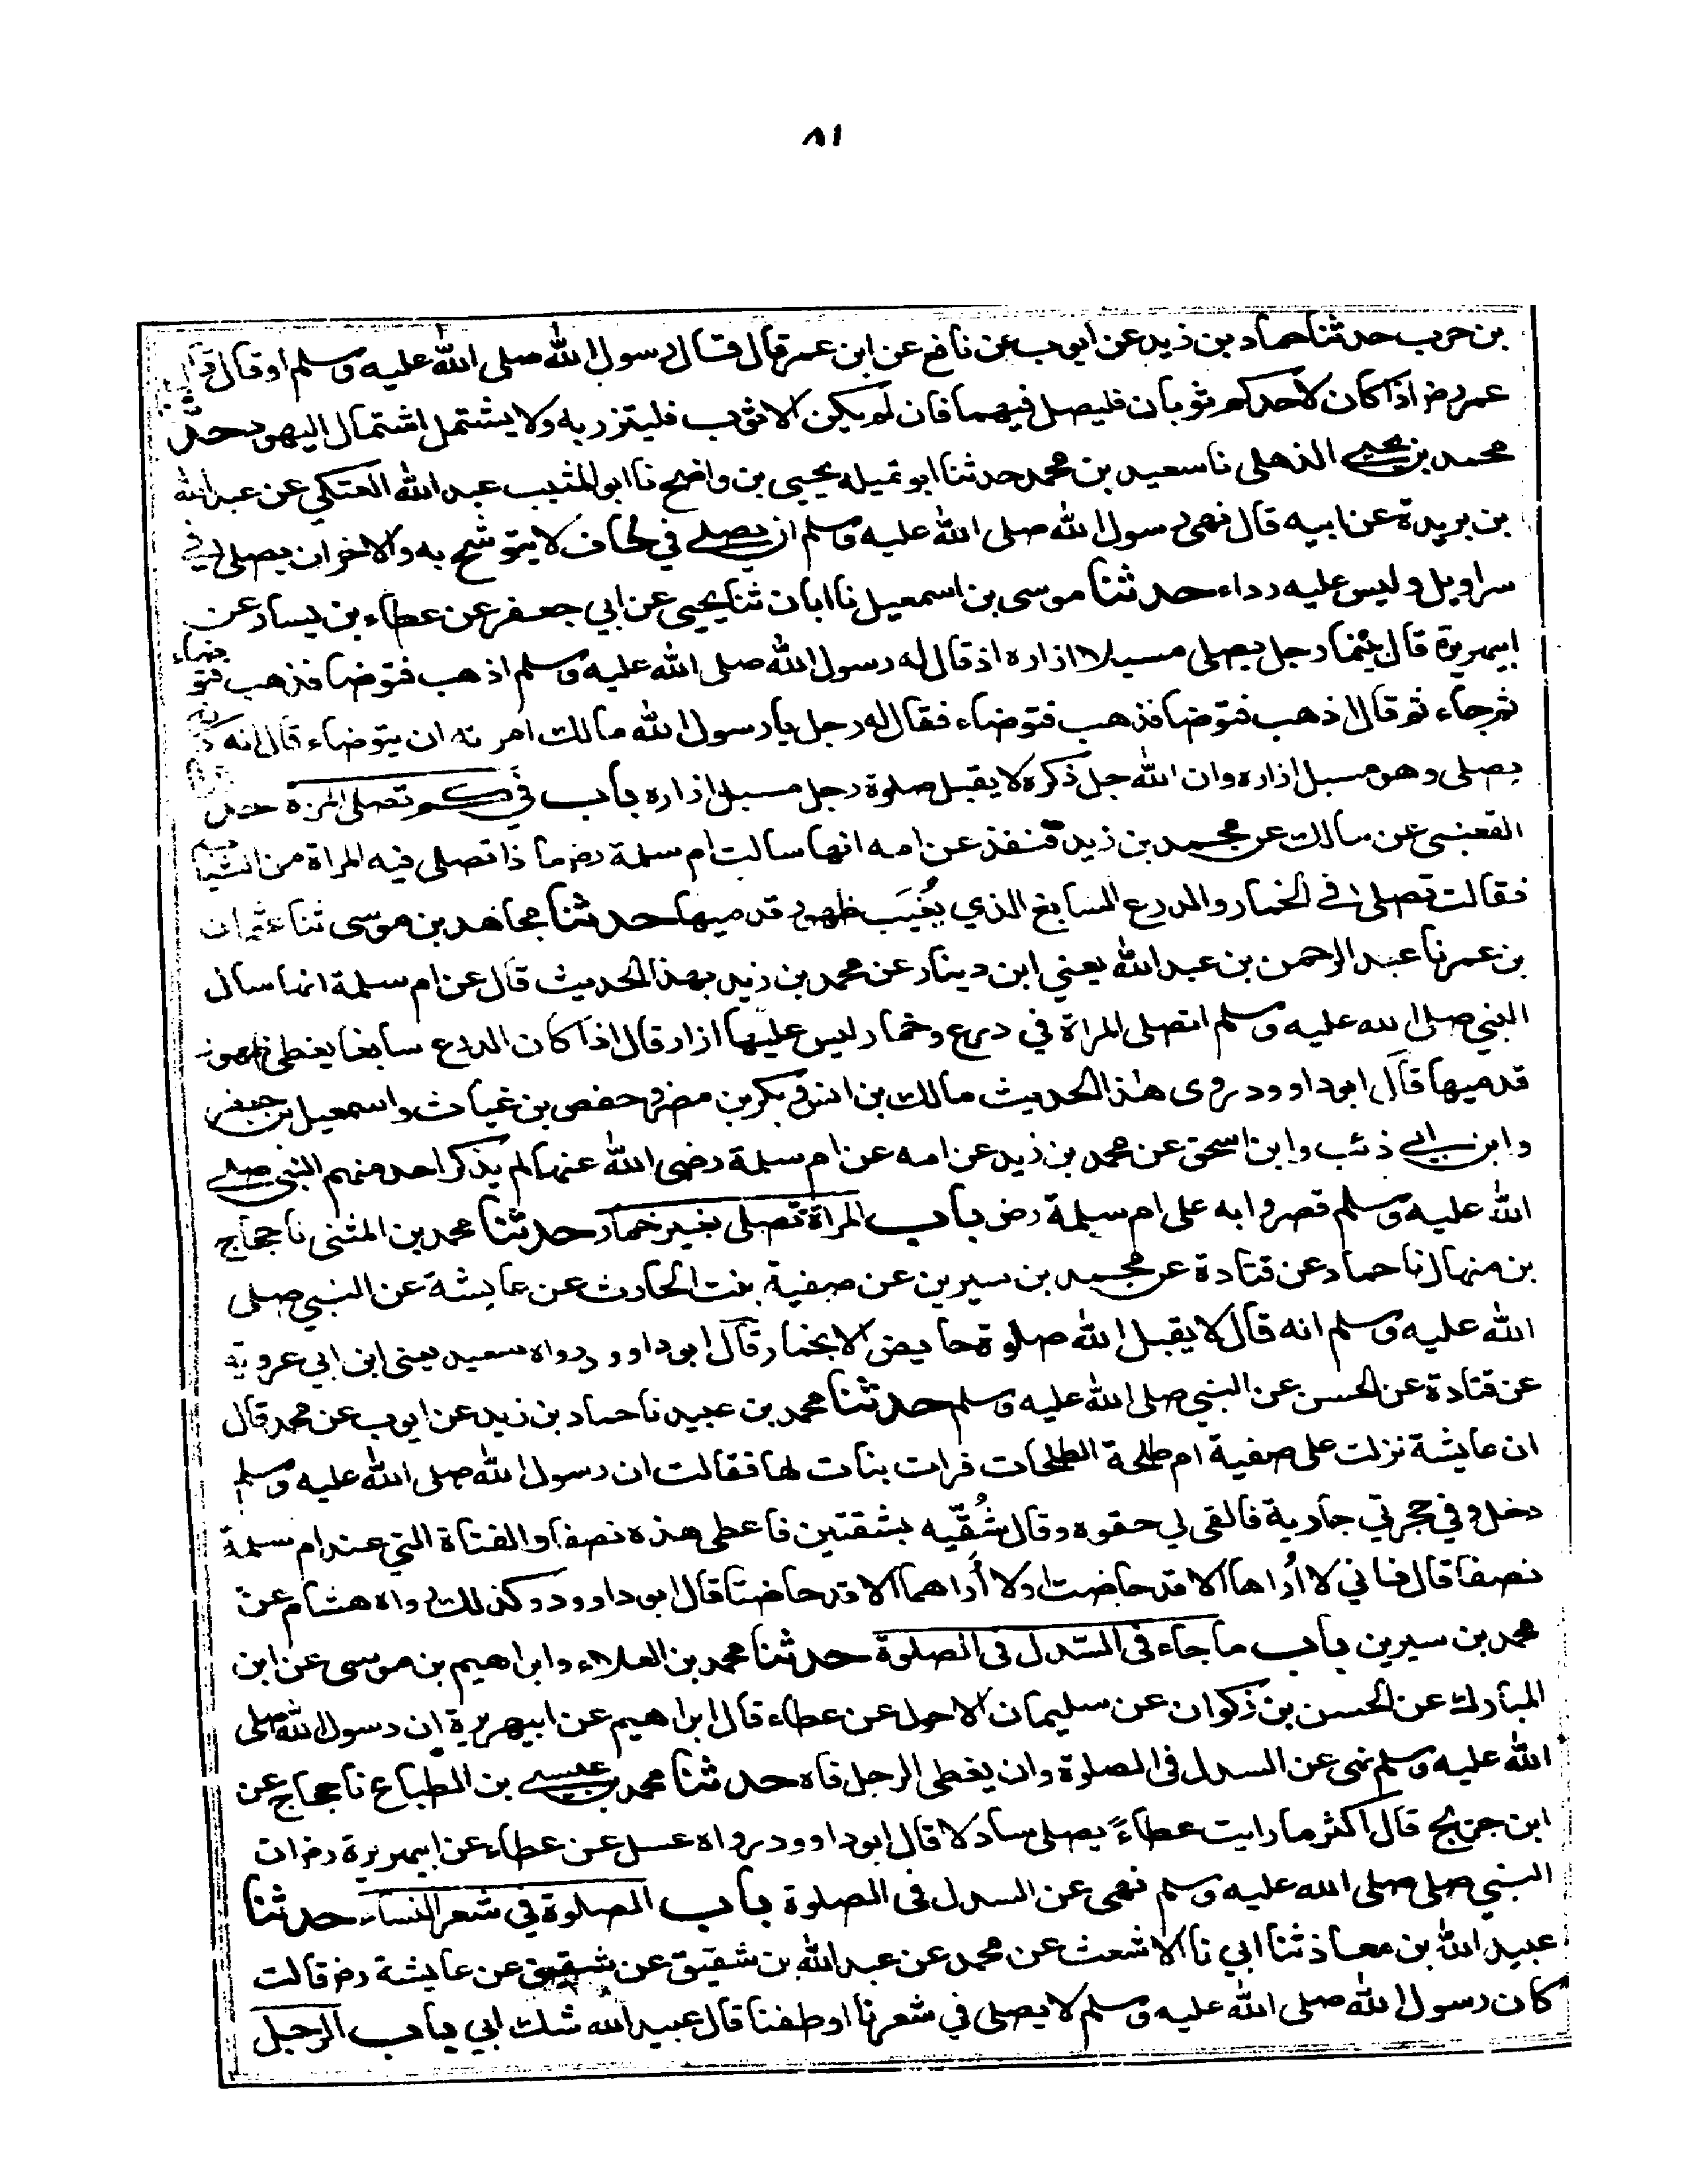 ٨١
بن حرب حدثنا حماد بن زيد عن ايوب عن نافع عن ابن عمر قال قال رسول الله صلى الله عليه وسلم او قال قال
عمر رض اذا كان لاحدكم ثوبان فليصل فيهما فان لم يكن الا ثوب فليتزر به ولا يشتمل اشتمال اليهود حدثنا
محمد بن يحيى الذهلى نا سعيد بن محمد حدثنا ابو تميلة يحيى بن واضح نا ابو المنيب عبد الله العتكي عن عبد الله
بن بريدة عن ابيه قال نهى رسول الله صلى الله عليه وسلم ان يصلى في لحاف لا يتوشح به والاخر ان يصلى في
سراويل وليس عليه رداء حدثنا موسى بن اسمعيل نا ابان ثنا يحيى عن ابي جعفر عن عطاء بن يسار عن
ابيهريرة قال بينما رجل يصلى مسبلا ازاره اذ قال له رسول الله صلى الله عليه وسلم اذهب فتوضا فذهب فتوضاء
ثم جاء ثم قال اذهب فتوضا فذهب فتوضاء فقال له رجل يا رسول الله مالك امرته ان يتوضاء قال انه كان
يصلى وهو مسبل ازاره وان الله جل ذكره لا يقبل صلوة رجل مسبل ازاره باب في كم تصلى المرءة حدثنا
القعنبى عن مالك عن محمد بن زيد قنفذ عن امه انها سالت ام سلمة رض ما ذا تصلى فيه المراة من الثياب
فقالت تصلى في الخمار والدرع السابغ الذي يُغَيَب ظهور قدميها حدثنا مجاهد بن موسى ثنا عثمان
بن عمر نا عبد الرحمن بن عبد الله يعني ابن دينار عن محمد بن زيد بهذا الحديث قال عن ام سلمة انها سالت
النبي صلى الله عليه وسلم اتصلى المراة في درع وخمار ليس عليها ازار قال اذا كان الدرع سابغا يغطى ظهور
قدميها قال ابو داوود روى هذا الحديث مالك بن انس وبكر بن مضر وحفص بن غياث واسمعيل بن جعفر
وابن ابي ذئب وابن اسحق عن محمد بن زيد عن امه عن ام سلمة رضى الله عنها لم يذكر احد منهم النبي صلى
الله عليه وسلم قصروا به على ام سلمة رض باب المراة تصلى بغير خمار حدثنا محمد بن المثنى نا حجاج
بن منهال نا حماد عن قتادة عن محمد بن سيرين عن صفية بنت الحارث عن عايشة عن النبي صلى
الله عليه وسلم انه قال لا يقبل الله صلوة حايض الا بخمار قال ابو داوود رواه سعيد يعنى ابن ابي عروبة
عن قتادة عن الحسن عن النبي صلى الله عليه وسلم حدثنا محمد بن عبيد نا حماد بن زيد عن ايوب عن محمد قال
ان عايشة نزلت على صفية ام طلحة الطلحات فرات بنات لها فقالت ان رسول الله صلى الله عليه وسلم
دخل وفي حجرتي جارية فالقى لي حقوه وقال شُقّيه بشقتين فاعطى هذه نصفا والفتاة التي عند ام سلمة
نصفا قال فاني لا أُراها الا قد حاضت او لا أُراهما الا قد حاضتا قال ابو داوود وكذلك رواه هشام عن
محمد بن سيرين باب ما جاء في السّدل في الصلوة حدثنا محمد بن العلاء وابراهيم بن موسى عن ابن
المبارك عن الحسن بن ذكوان عن سليمان الاحول عن عطاء قال ابراهيم عن ابيهريرة ان رسول الله صلى
الله عليه وسلم نهى عن السدل في الصلوة وان يغطى الرجل فاه حدثنا محمد بن عيسى بن الطباع نا حجاج عن
ابن جريج قال اكثر ما رايت عطاءً يصلى سادلا قال ابو داوود رواه عسل عن عطاء عن ابيهريرة رض ان
النبي صلى صلى الله عليه وسلم نهى عن السدل في الصلوة باب الصلوة في شعر النساء حدثنا
عبيد الله بن معاذ ثنا ابي نا الاشعث عن محمد عن عبد الله بن شقيق عن شقيق عن عايشة رض قالت
كان رسول الله صلى الله عليه وسلم لا يصلى في شعرنا او طفنا قال عبيد الله شك ابي باب الرجل